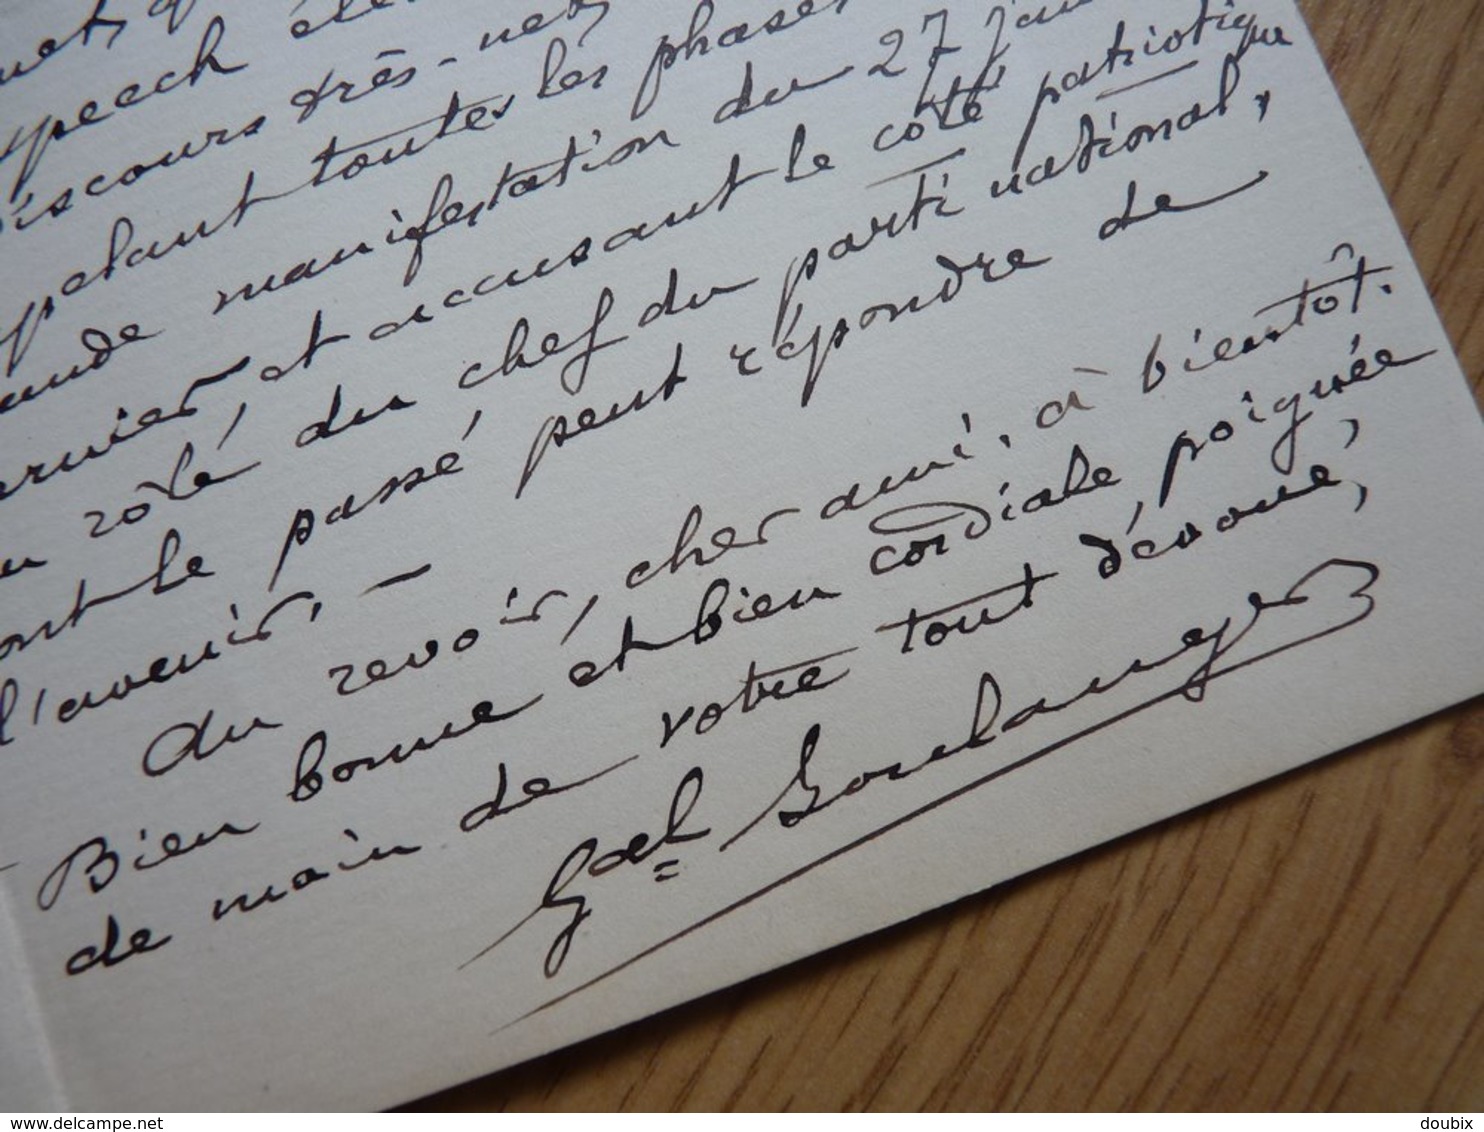 speech
discours très-net,
toutes les phases
manifestation du 27
et accusant le côté patriotique
rôle, du chef du parti national,
le passé peut répondre de
l'avenir. —
Au revoir, cher ami, à bientôt.
Bien bonne et bien cordiale poignée
de main de votre tout dévoué,
Gal Boulanger
doubix